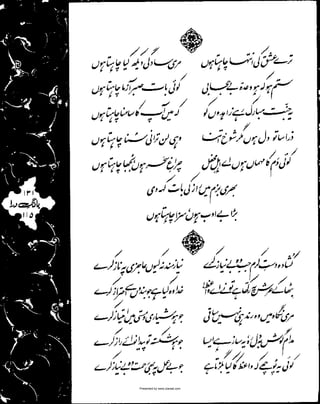 ترے عشق کی انتہا چاہتا ہوں
مری سادگی دیکھ کیا چاہتا ہوں
ستم ہو کہ ہو وعدۂ بے حجابی
کوئی بات صبر آزما چاہتا ہوں
یہ جنت مبارک رہے زاہدوں کو
کہ میں آپ کا سامنا چاہتا ہوں
ذرا سا تو دل ہوں مگر شوخ اتنا
وہی لن ترانی سنا چاہتا ہوں
کوئی دم کا مہماں ہوں اے اہلِ محفل
چراغِ سحر ہوں بجھا چاہتا ہوں
بھری بزم میں راز کی بات کہہ دی
بڑا بے ادب ہوں سزا چاہتا ہوں
کشادہ دستِ کرم جب وہ بے نیاز کرے
نیاز مند نہ کیوں عاجزی پہ ناز کرے
بٹھا کے عرش پہ رکھا ہے تو نے اے واعظ
خدا وہ کیا ہے جو بندوں سے احتراز کرے
مری نگاہ میں وہ رند ہی نہیں ساقی
جو ہوشیاری و مستی میں امتیاز کرے
مدام گوش بہ دل رہ یہ ساز ہے ایسا
جو ہو شکستہ تو پیدا نوائے راز کرے
کوئی یہ پوچھے کہ واعظ کا کیا بگڑتا ہے
جو بے عمل پہ بھی رحمت وہ بے نیاز کرے
۱۳۱
بانگِ درا
۱۱۵
Presented by www.ziaraat.com